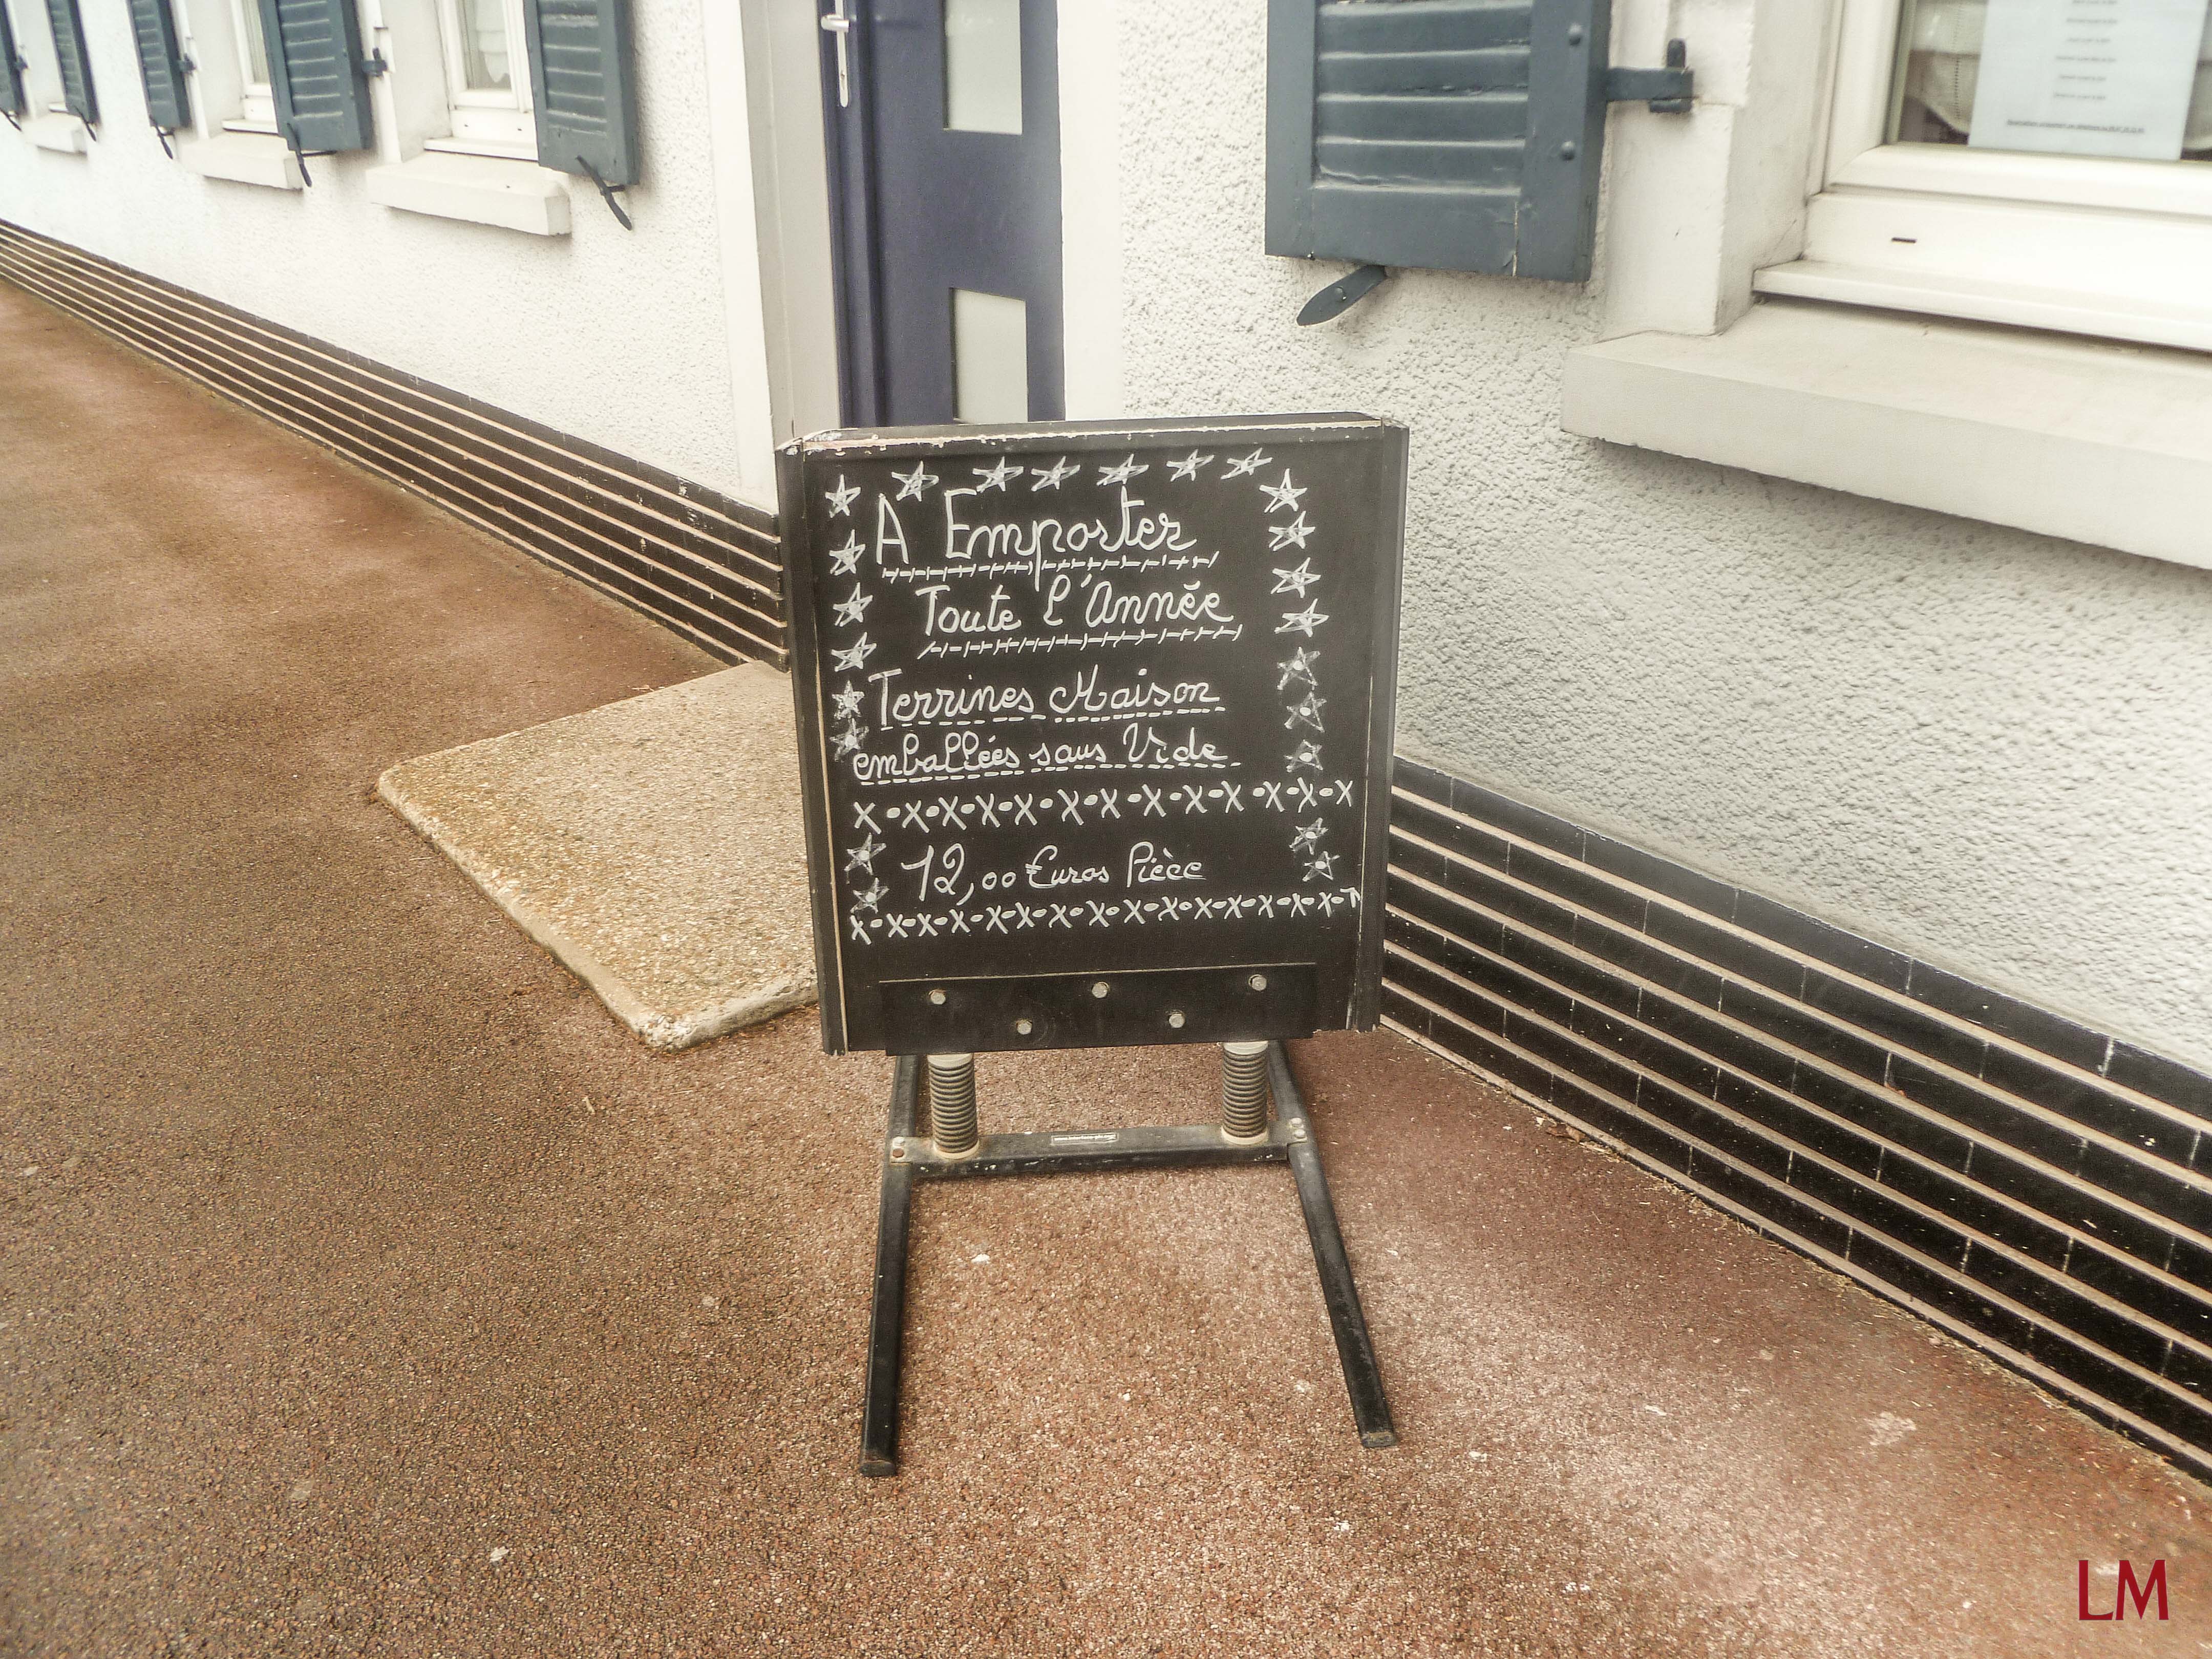 A Emporter
Toute l'Année
Terrines Maison
emballées sous Vide
12,00 Euros Pièce
LM